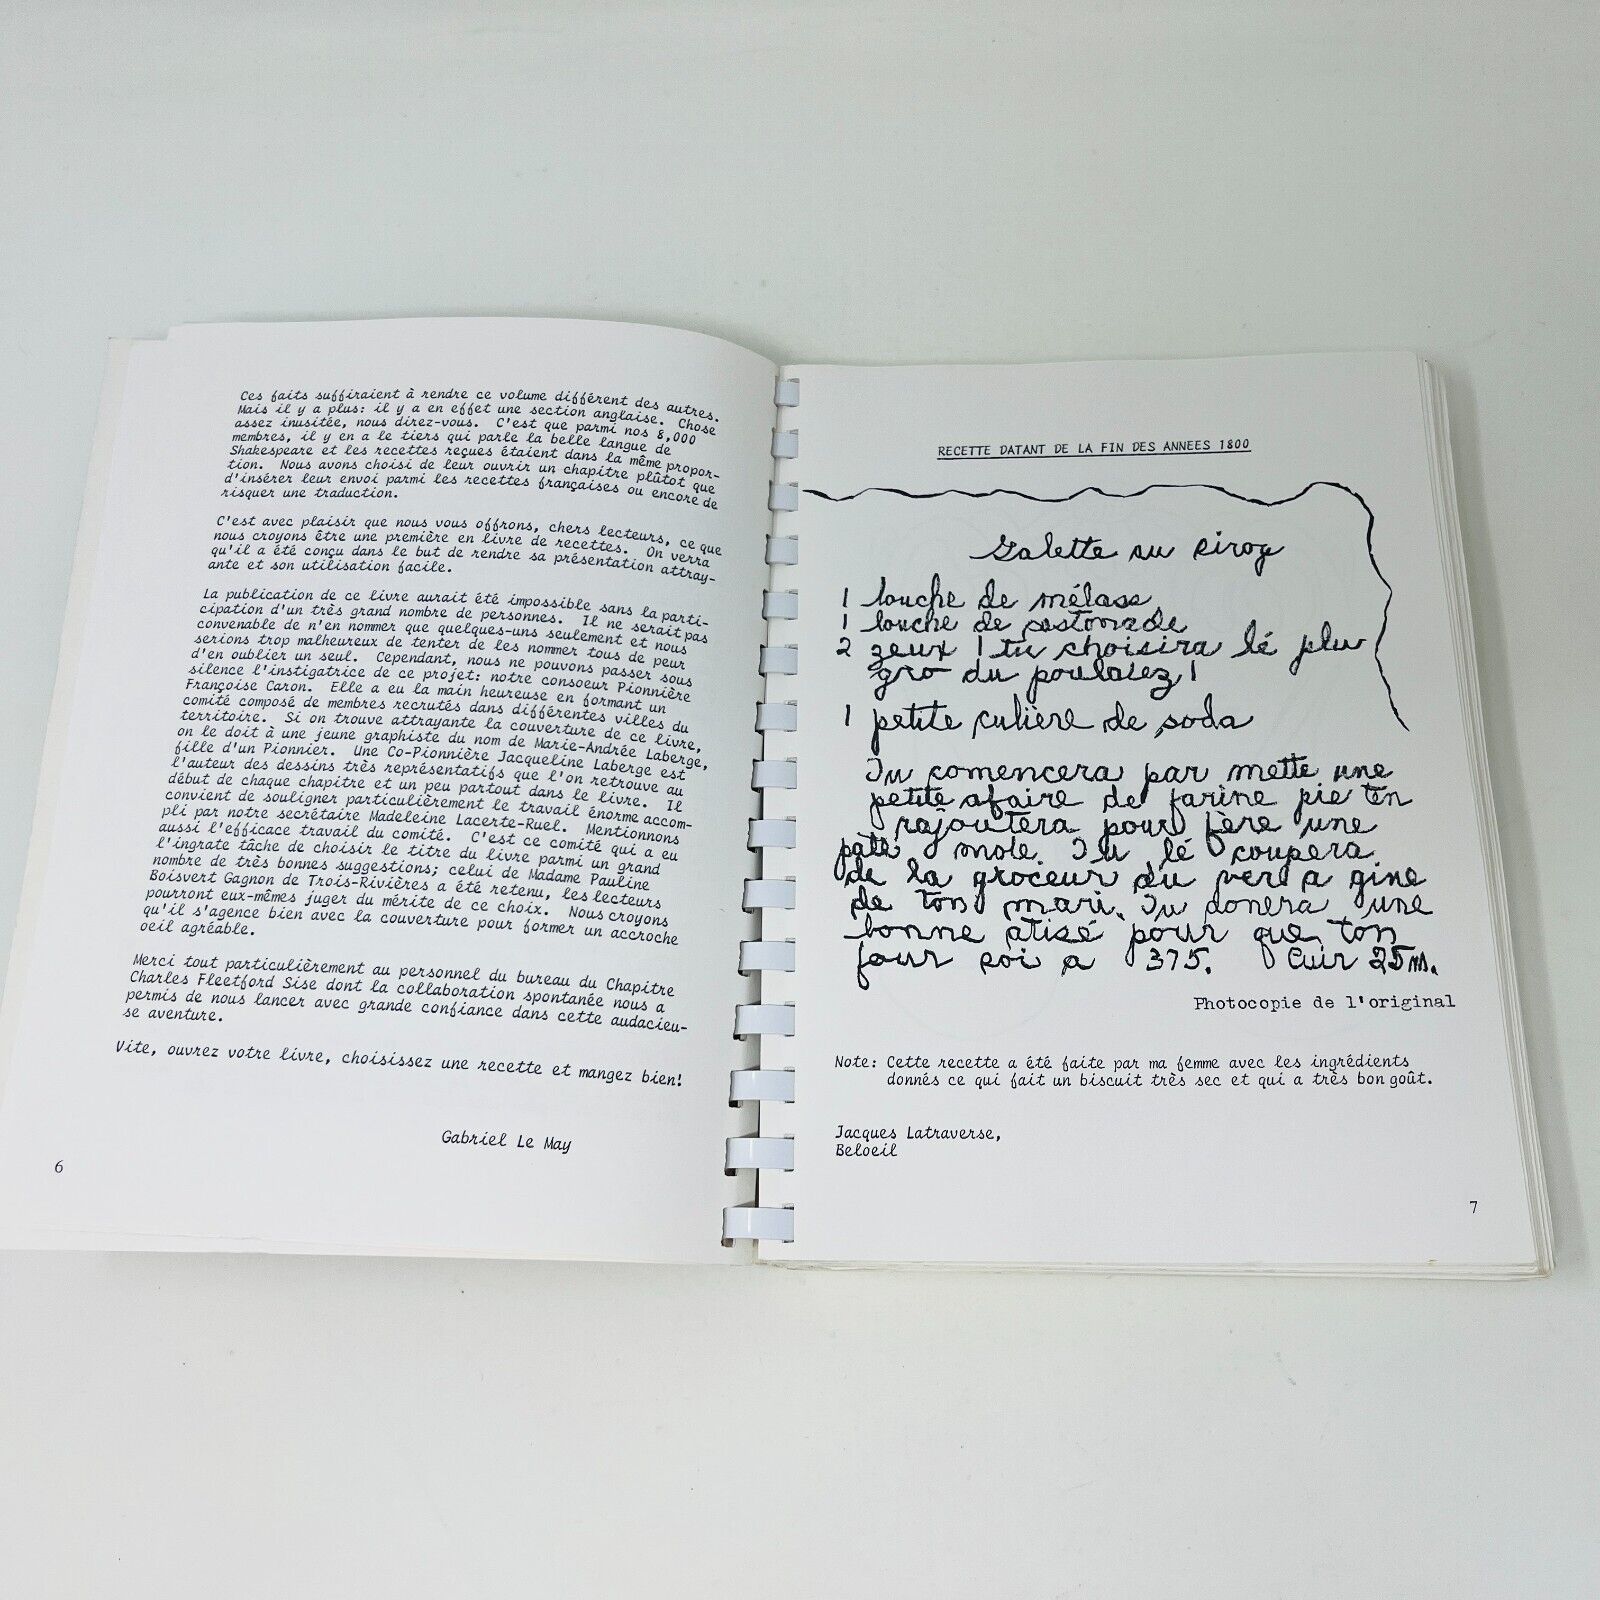 Ces faits suffiraient à rendre ce volume différent des autres.
Mais il y a plus: il y a en effet une section anglaise. Chose
assez inusitée, nous direz-vous. C'est que parmi nos 8,000
membres, il y en a le tiers qui parle la belle langue de
Shakespeare et les recettes reçues étaient dans la même propor-
tion. Nous avons choisi de leur ouvrir un chapitre plûtot que
d'insérer leur envoi parmi les recettes françaises ou encore de
risquer une traduction.
C'est avec plaisir que nous vous offrons, chers lecteurs, ce que
nous croyons être une première en livre de recettes. On verra
qu'il a été conçu dans le but de rendre sa présentation attray-
ante et son utilisation facile.
La publication de ce livre aurait été impossible sans la parti-
cipation d'un très grand nombre de personnes. Il ne serait pas
convenable de n'en nommer que quelques-uns seulement et nous
serions trop malheureux de tenter de les nommer tous de peur
d'en oublier un seul. Cependant, nous ne pouvons passer sous
silence l'instigatrice de ce projet: notre consoeur Pionnière
Françoise Caron. Elle a eu la main heureuse en formant un
comité composé de membres recrutés dans différentes villes du
territoire. Si on trouve attrayante la couverture de ce livre,
on le doit à une jeune graphiste du nom de Marie-Andrée Laberge,
fille d'un Pionnier. Une Co-Pionnière Jacqueline Laberge est
l'auteur des dessins très représentatifs que l'on retrouve au
début de chaque chapitre et un peu partout dans le livre. Il
convient de souligner particulièrement le travail énorme accom-
pli par notre secrétaire Madeleine Lacerte-Ruel. Mentionnons
aussi l'efficace travail du comité. C'est ce comité qui a eu
l'ingrate tâche de choisir le titre du livre parmi un grand
nombre de très bonnes suggestions; celui de Madame Pauline
Boisvert Gagnon de Trois-Rivières a été retenu, les lecteurs
pourront eux-mêmes juger du mérite de ce choix. Nous croyons
qu'il s'agence bien avec la couverture pour former un accroche
oeil agréable.
Merci tout particulièrement au personnel du bureau du Chapitre
Charles Fleetford Sise dont la collaboration spontanée nous a
permis de nous lancer avec grande confiance dans cette audacieu-
se aventure.
Vite, ouvrez votre livre, choisissez une recette et mangez bien!
Gabriel Le May
6
RECETTE DATANT DE LA FIN DES ANNEES 1800
Galette au sirog
1 louche de mélass
1 louche de castonade
2 zeux ! tu choisira lé plu
gro du poulaiez !
1 petite culière de soda
Tu comencera par mette une
petite afaire de farine pie t'en
rajoutera pour fère une
pate mole. Tu lé coupera
de la groceur du ver a gine
de ton mari. Tu donera une
bonne atisé pour que ton
four soi a 375. Cuir 25 m.
Photocopie de l'original
Note: Cette recette a été faite par ma femme avec les ingrédients
donnés ce qui fait un biscuit très sec et qui a très bon goût.
Jacques Latraverse,
Beloeil
7